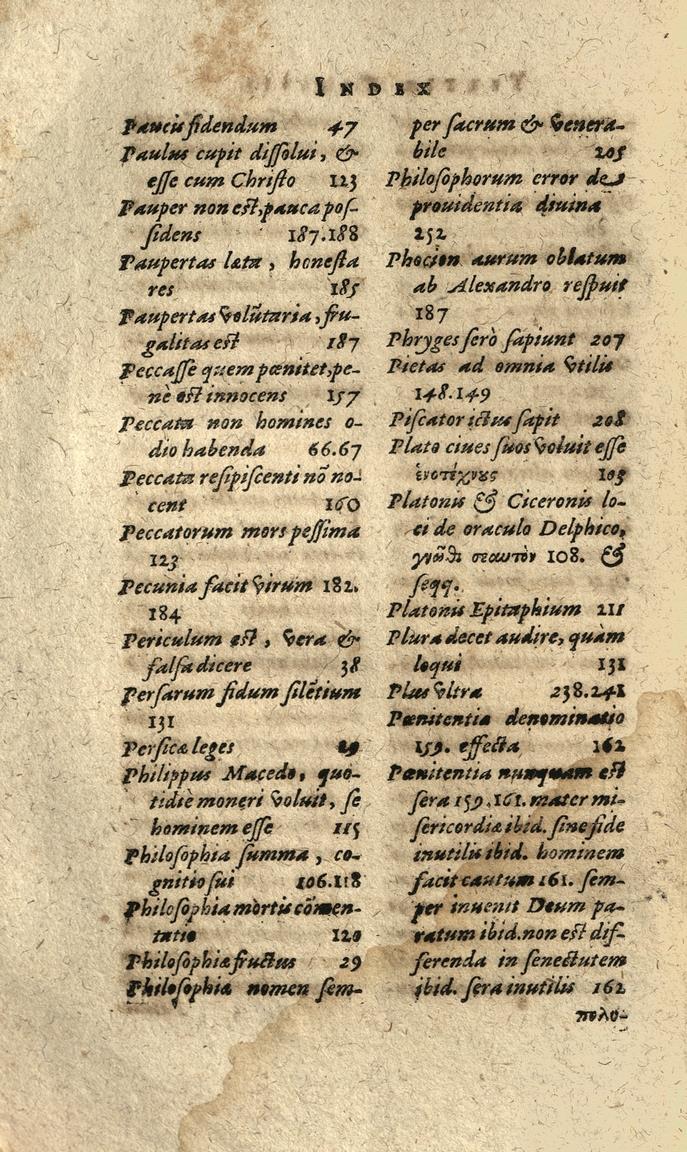 INDEX
Paucis fidendum 47
Paulus cupit dissolui, &
esse cum Christo 123
Pauper non est, pauca pos-
sidens 187.188
Paupertas læta, honesta
res 185
Paupertas volũtaria, fru-
galitas est 187
Peccasse quem pœnitet, pe-
nè est innocens 157
Peccata non homines o-
dio habenda 66.67
Peccata resipiscenti nõ no-
cent 160
Peccatorum mors pessima
123
Pecunia facit virum 182.
184
Periculum est, vera &
falsa dicere 38
Persarum fidum silẽtium
131
Persicæ leges 29
Philippus Macedo, quo-
tidiè moneri voluit, se
hominem esse 115
Philosophia summa, co-
gnitio sui 106.118
Philosophia mortis cõmen-
tatio 120
Philosophiæ fructus 29
Philosophia nomen sem-
per sacrum & venera-
bile 205
Philosophorum error de
prouidentia diuina
252
Phocion aurum oblatum
ab Alexandro respuit
187
Phryges serò sapiunt 207
Pietas ad omnia vtilis
148.149
Piscator ictus sapit 208
Plato ciues suos voluit esse
ἑνοτέχνους 105
Platonis & Ciceronis lo-
ci de oraculo Delphico,
γνῶθι σεαυτὸν 108. &
seqq.
Platonis Epitaphium 211
Plura decet audire, quàm
loqui 131
Plus vltra 238.241
Pœnitentia denominatio
159. effecta 162
Pœnitentia nunquam est
sera 159.161. mater mi-
sericordiæ ibid. sine fide
inutilis ibid. hominem
facit cautum 161. sem-
per inuenit Deum pa-
ratum ibid. non est dif-
ferenda in senectutem
ibid. sera inutilis 162
πολυ-